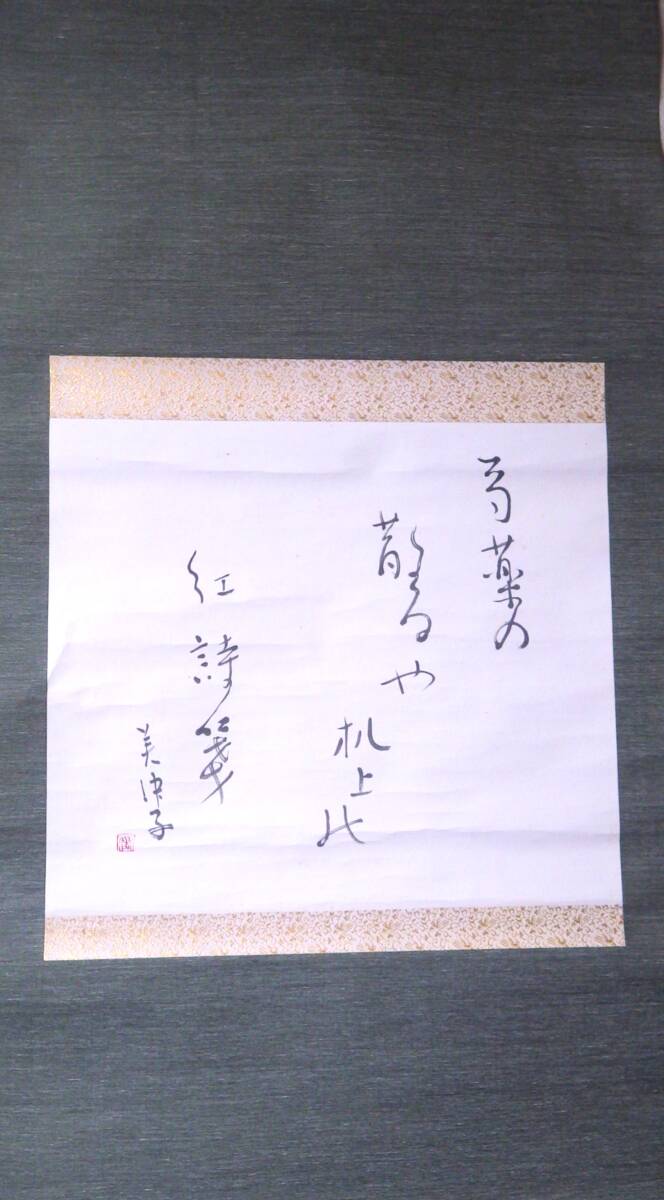 芍薬の
散るや
机上の
紅詩箋
美津子